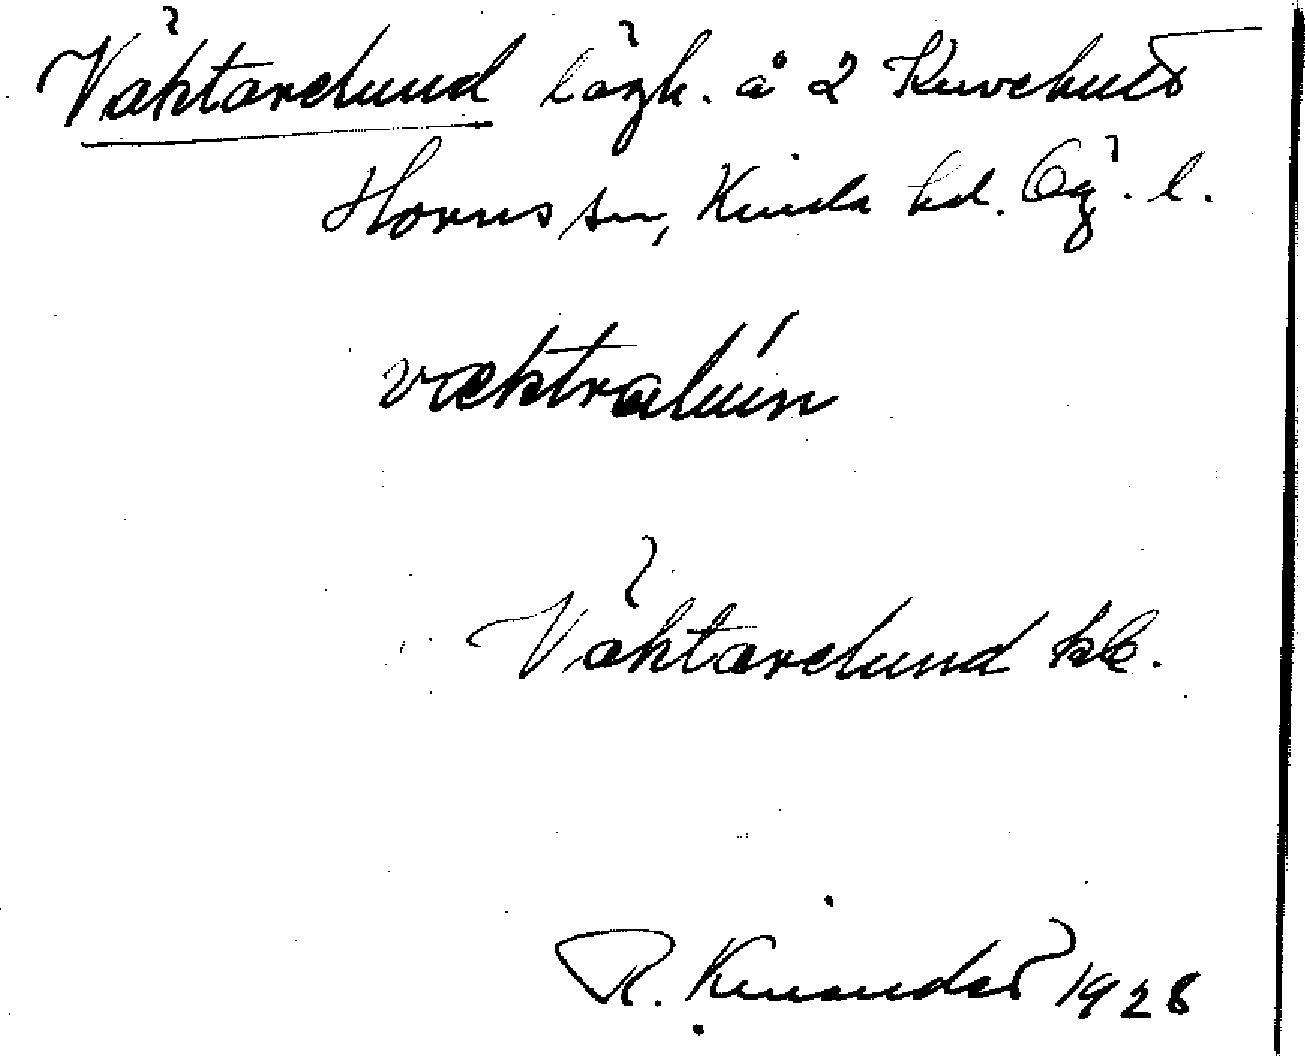 Väktarelund lägh. å 2 Kuvehult
Horns sn, Kinda hd. Ög. l.
væktralún
Väktarelund kb.
R. Kinander 1928